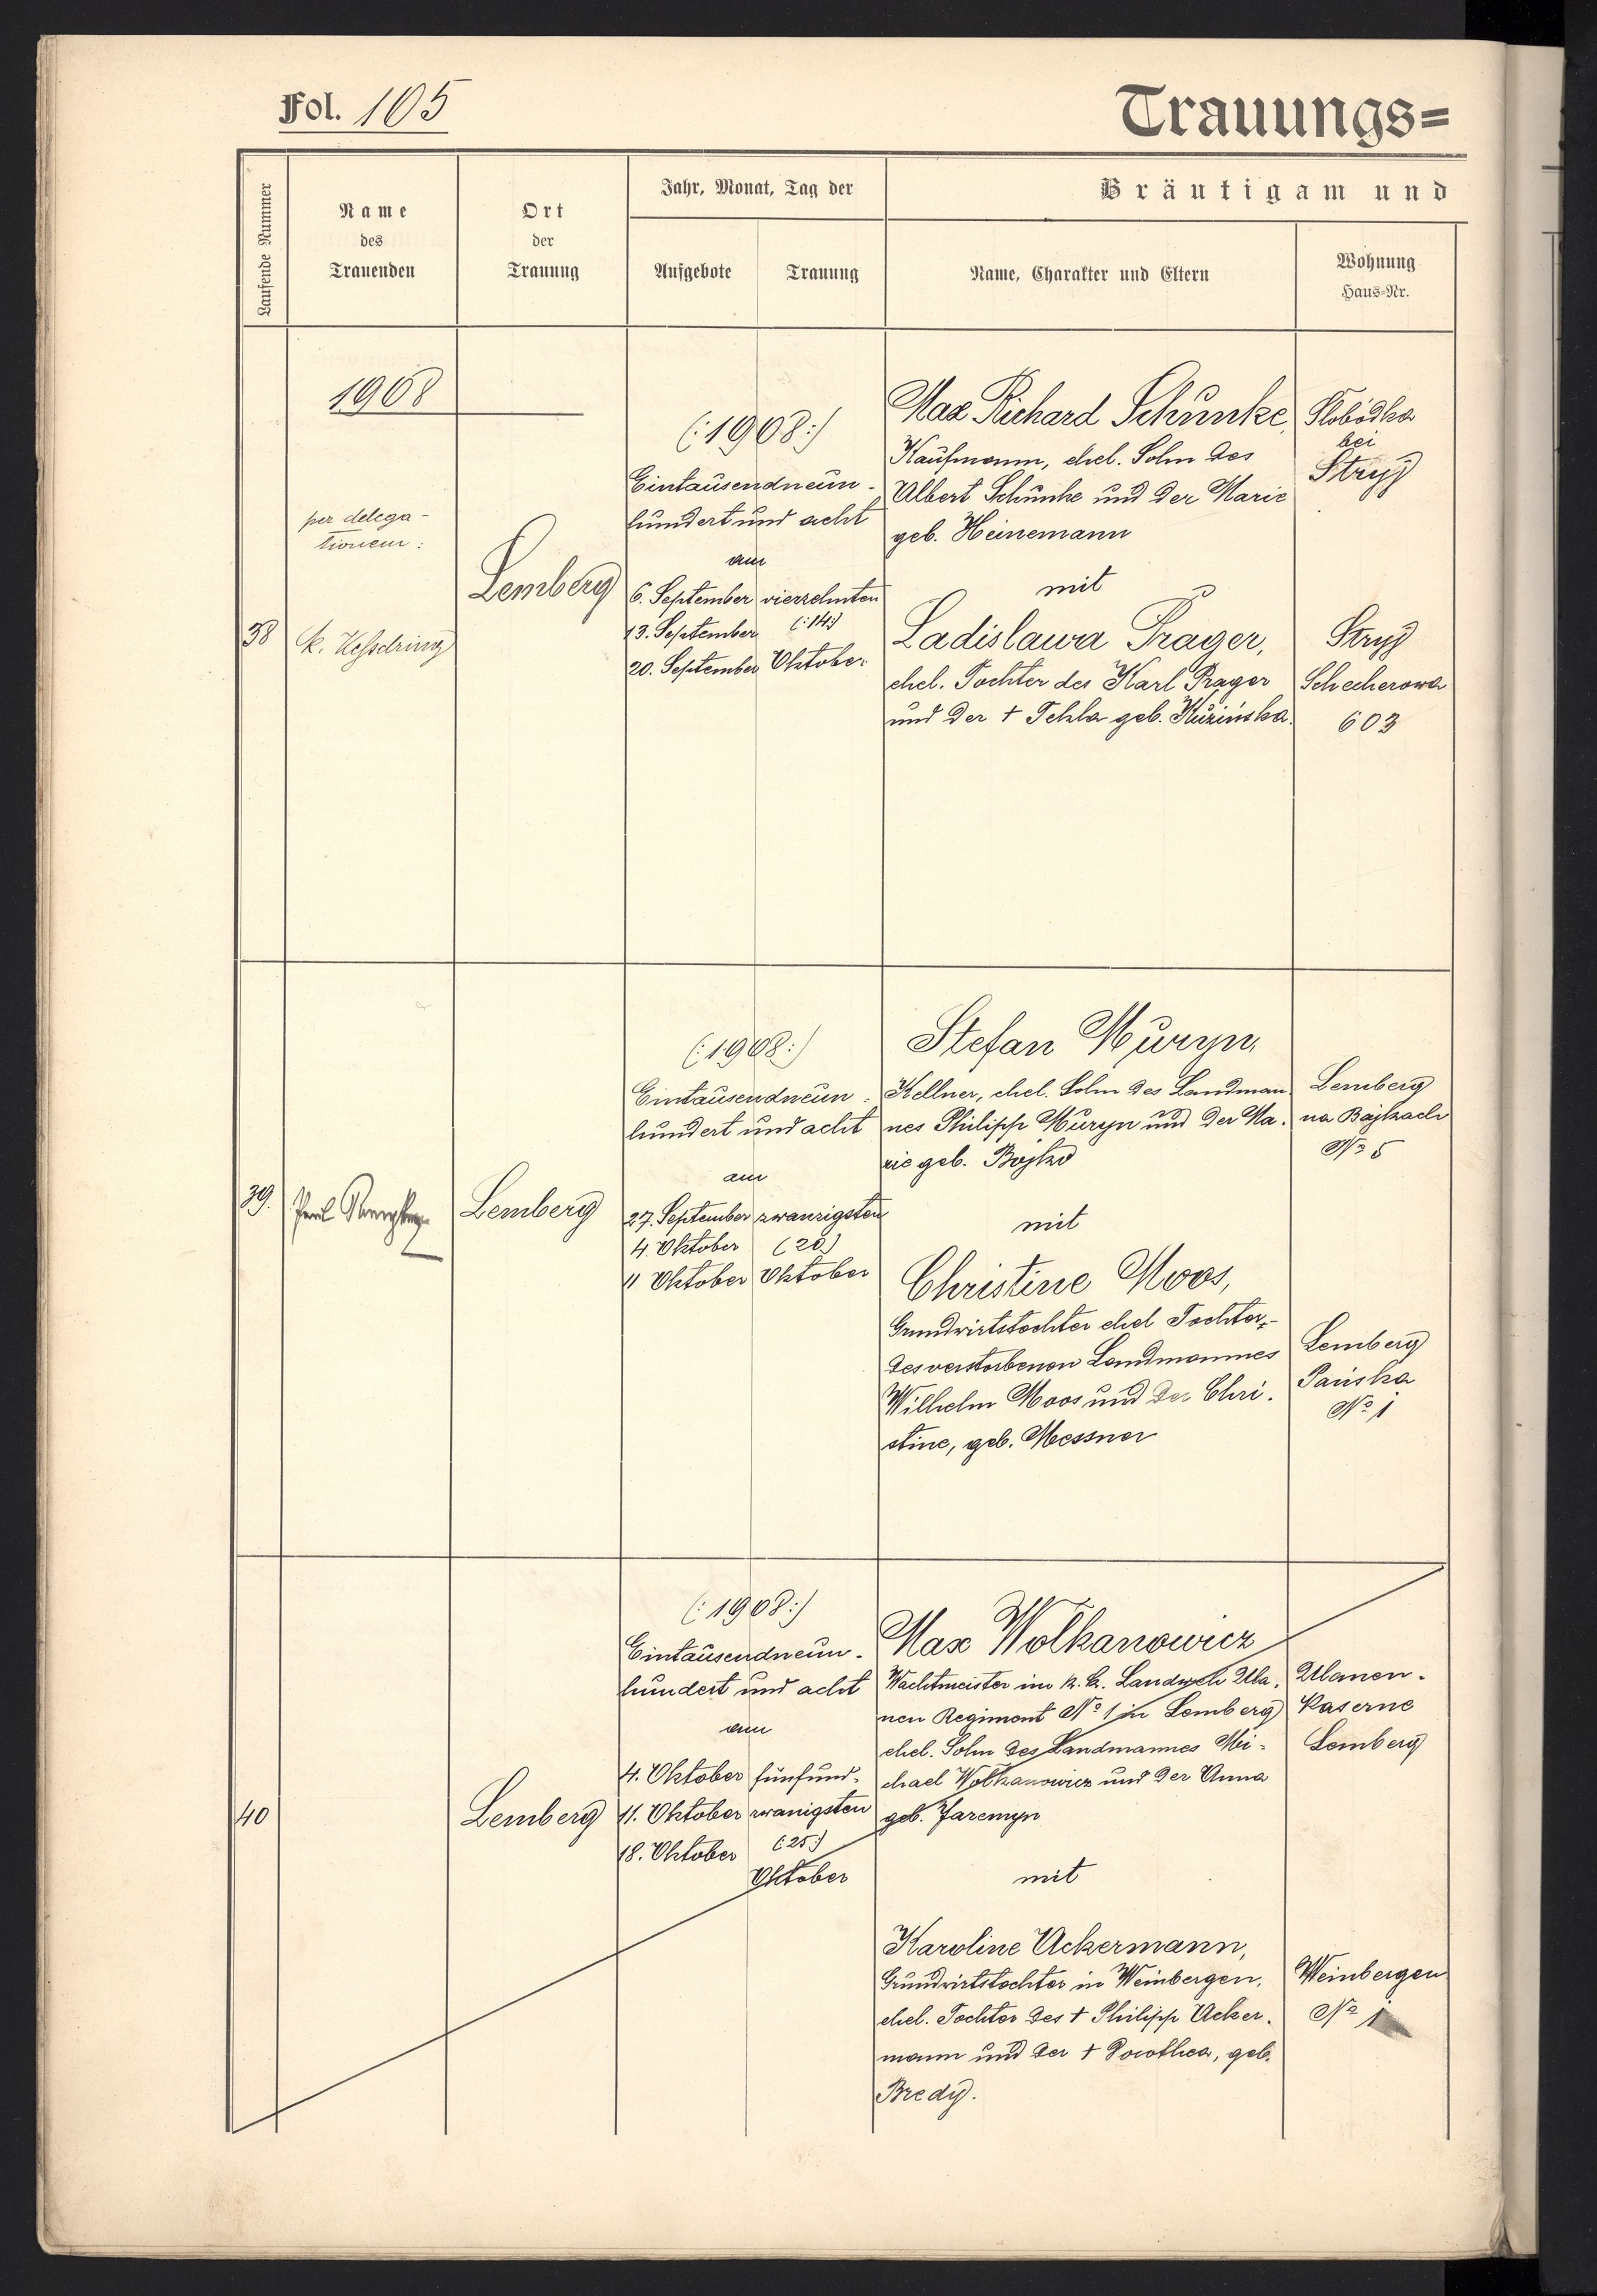 Fol. 105
Trauungs=
Laufende Nummer
Name
des
Trauenden
Ort
der
Trauung
Jahr, Monat, Tag der
Aufgebote
Trauung
Bräutigam und
Name, Charakter und Eltern
Wohnung
Haus-Nr.
1908
per delega-
tionem:
38
Lemberg
(:1908:)
Eintausendneun-
hundert und acht
am
6. September vierzehnten
13. September (:14:)
20. September Oktober
Max Richard Schunke,
Kaufmann, ehel. Sohn des
Albert Schunke und der Marie
geb. Heinemann
mit
Ladislawa Prager,
ehel. Tochter des Karl Prager
und der † Tekla geb. Kuzińska.
Slobódka
bei
Stryj
Stryj
Schecherowa
603
39.
Lemberg
(:1908:)
Eintausendneun-
hundert und acht
am
27. September zwanzigsten
4. Oktober (20)
11 Oktober Oktober
Stefan Muryn,
Kellner, ehel. Sohn des Landman
nes Philipp Muryn und der Ma-
rie geb. Bojko
mit
Christine Moos,
Grundwirtstochter ehel Tochter,-
des verstorbenen Landmannes
Wilhelm Moos und der Chri-
stine, geb. Messner
Lemberg
na Bajkach
No 5
Lemberg
Pańska
No 1
40
Lemberg
(:1908:)
Eintausendneun-
hundert und acht
am
4. Oktober fünfund-
11. Oktober zwanigsten
18. Oktober (:25:)
Oktober
Max Wolkanowicz
Wachtmeister im k. k. Landweh Ula-
nen Regiment No 1 in Lemberg
ehel. Sohn des Landmannes Mi-
chael Wolkanowicz und der Anna
geb. Jaremyn
mit
Karoline Ackermann,
Grundwirtstochter in Weinbergen,
ehel. Tochter des † Philipp Acker-
mann und der † Dorothea, geb.
Bredy.
Ulanen-
Kaserne
Lemberg
Weinbergen
No 1